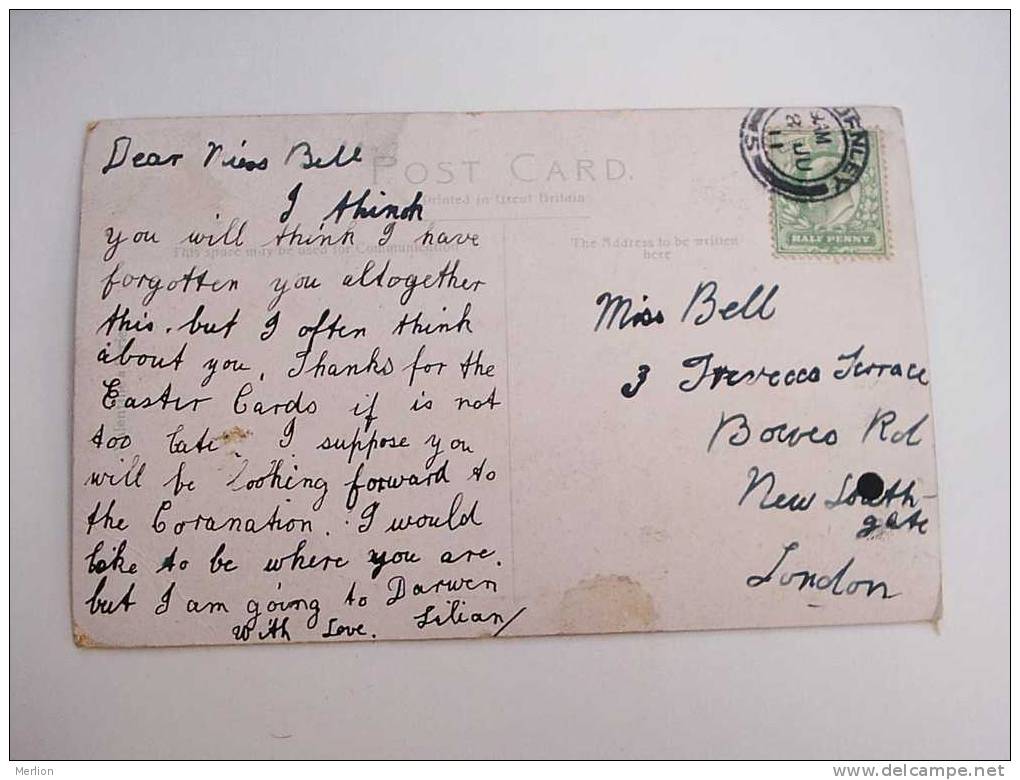 Dear Miss Bell
POST CARD.
Printed in Great Britain
I think
you will think I have
This space may be used for Communication
forgotten you altogether
this. but I often think
about you. Thanks for the
Easter Cards if is not
too late. I suppose you
will be looking forward to
the Coranation. I would
like to be where you are.
but I am going to Darwen
With Love. Lilian
The Address to be written
here
HALF PENNY
JU
11
5
Miss Bell
3 Terrace
Bowes Rd
New South-
gate
London
Merlion
delcampe.net